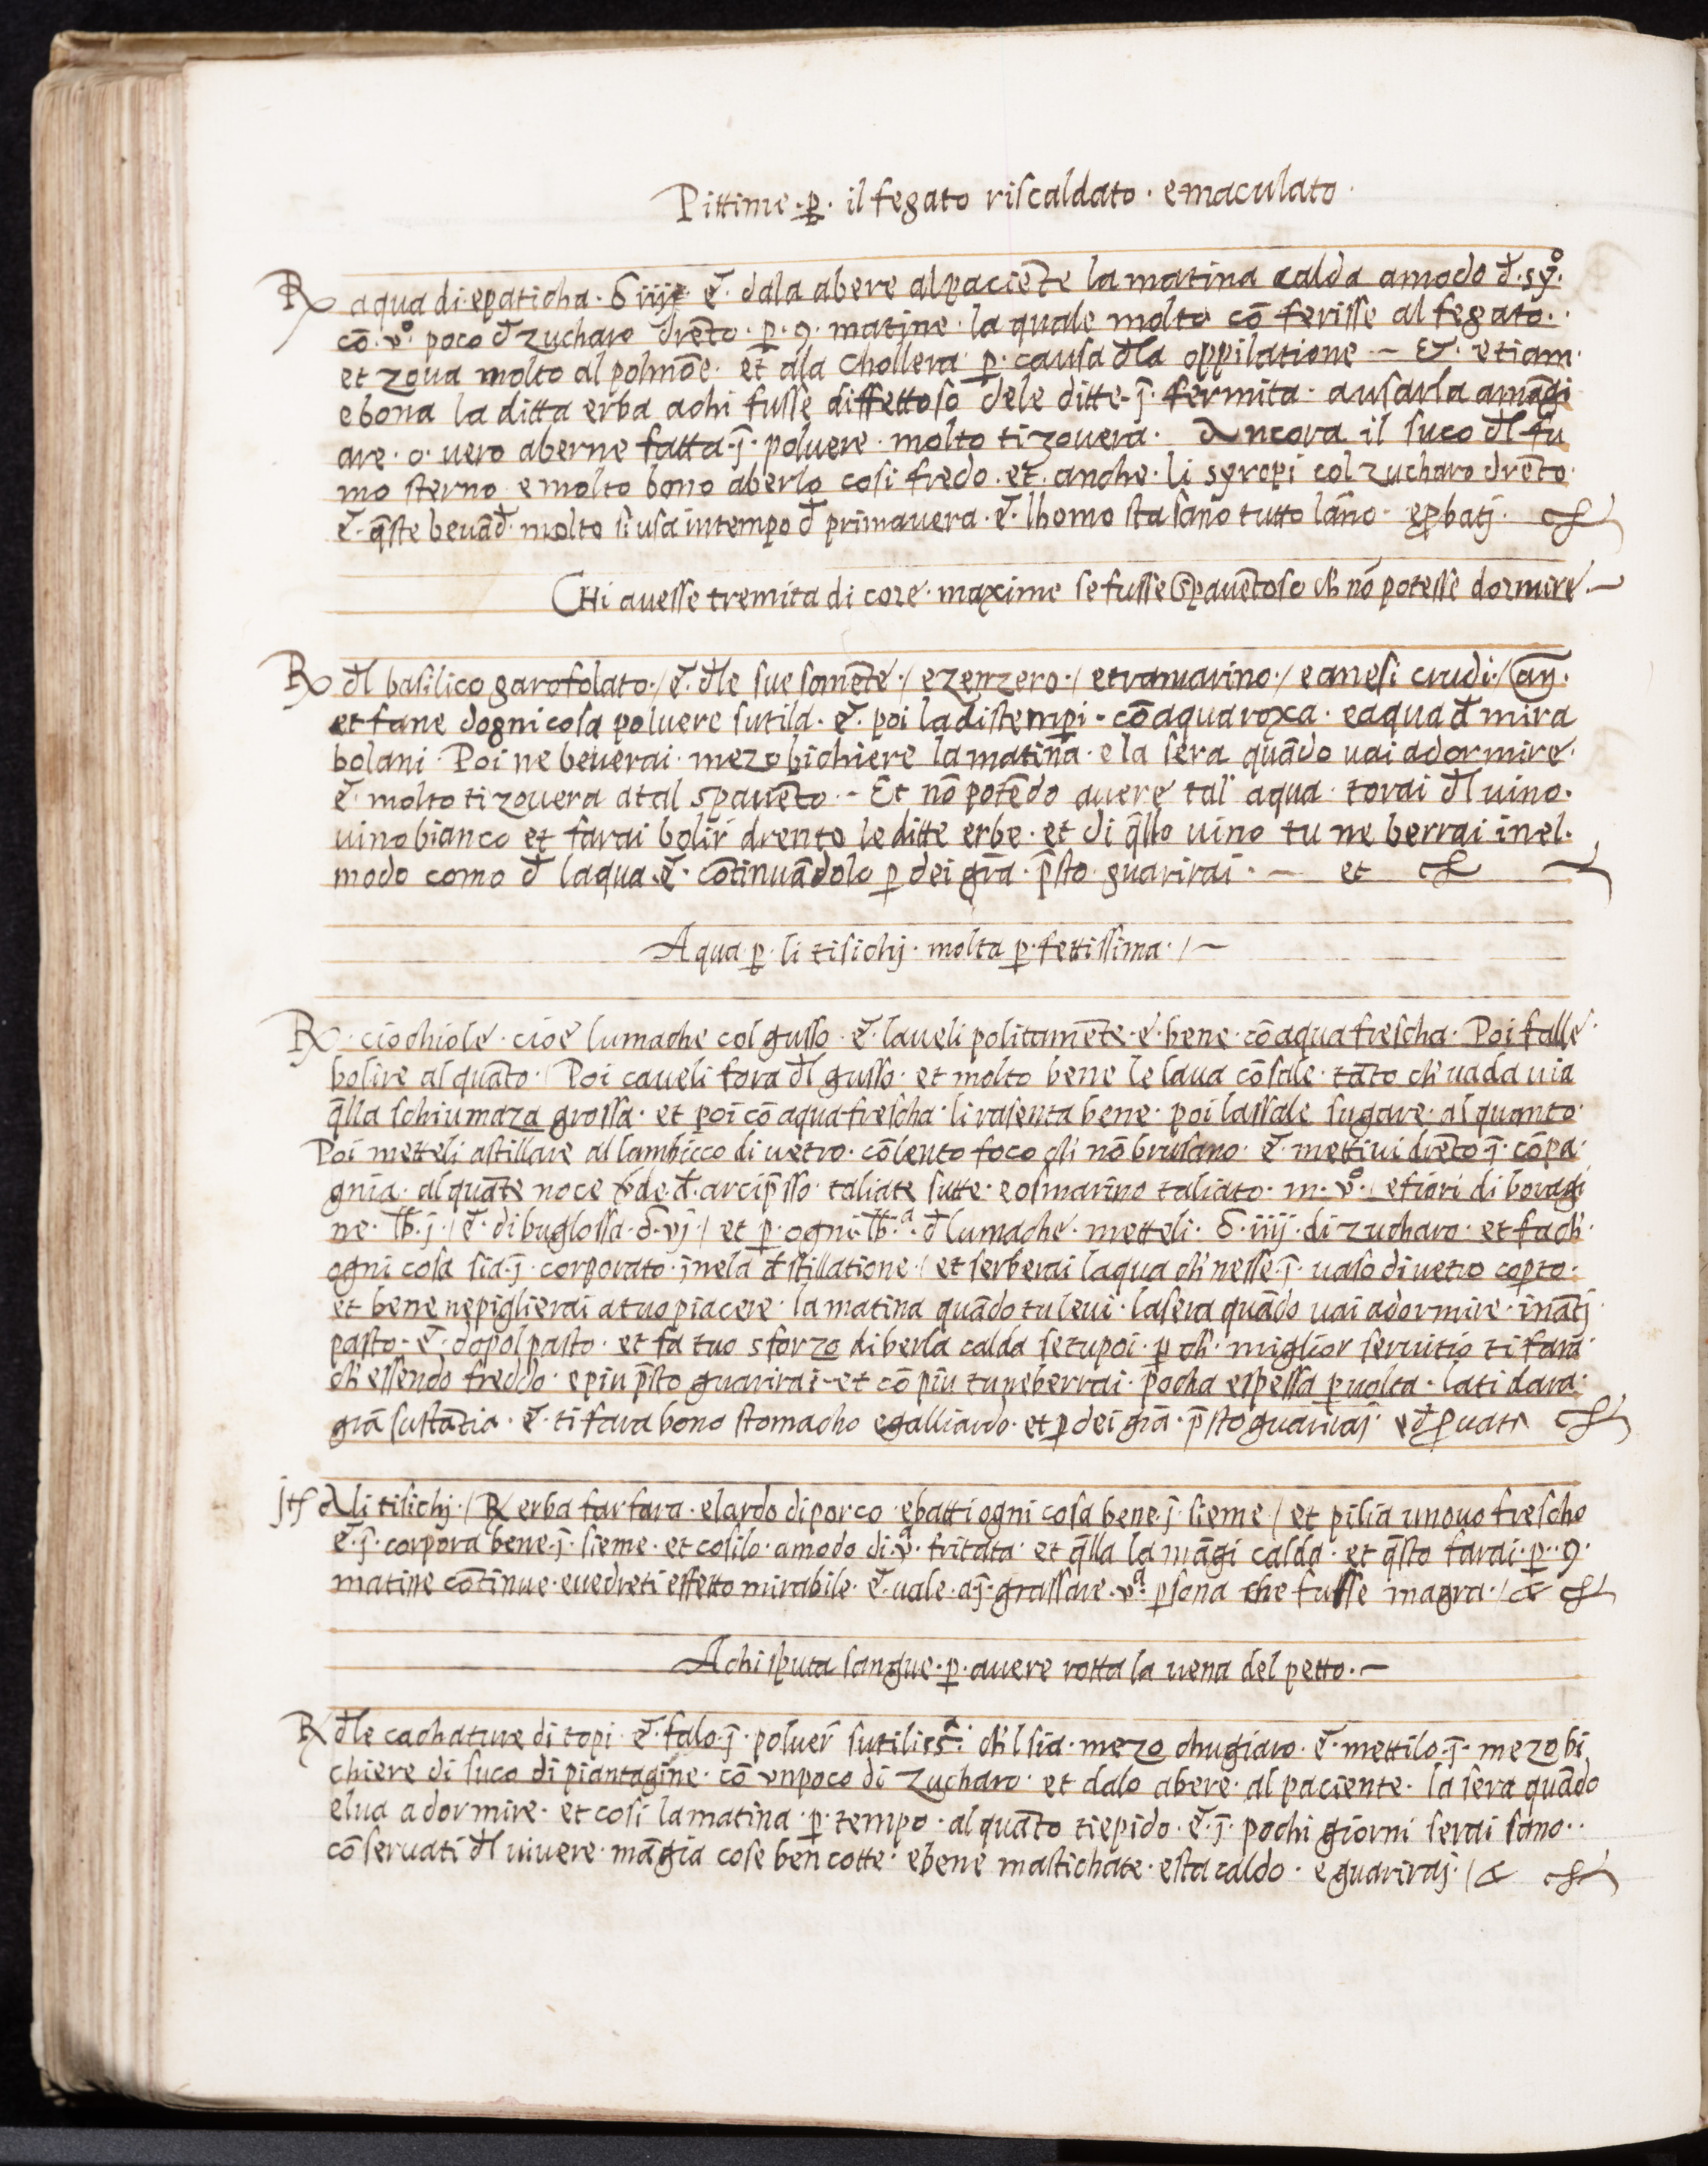 Pittime · p̱ · il fegato riscaldato · e maculato ·
℞ aqua di epaticha · ʒ iiij · & · dala abere al paciēte la matina calda a modo đ · syº ·
cō · vº · poco đ zucharo drēto · p̱ · 9 · matine · la quale molto cō ferisse al fegato ·
et zova molto al polmōe · et ala chollera p̱ · causa đla oppilatione — Et · etiam ·
e bona la ditta erba a chi fusse diffettoso dele ditte · j̄ · fermita · a usarla a māgi
are · o · vero aberne fatta · j̄ · polvere · molto ti zovera · Ancora il suco đl fu
mo sterno e molto bono aberlo cosi fredo · et · anche · li syropi col zucharo drēto ·
& · q̄ste bevāđ · molto si usa in tempo đ primavera · & · lhomo sta sano tutto lāno · ꝓbatj ·
CHi avesse tremita di core · maxime se fusse spavētoso ch' nō potesse dormire · —
℞ đl basilico garofolato · / & · đle sue somēte · / e zenzero · / et ramarino · / e anesi crudi · / an̄ ·
et fane dogni cosa polvere sutila · & · poi la distempi · cō aqua roxa · e aqua đ mira
bolani · Poi ne beverai · mezo bichiere la matina · e la sera quādo vai a dormire ·
& · molto ti zovera a tal spavēto · – Et nō potēdo avere tal aqua · torai đl vino ·
vino bianco et farai bolir drento le ditte erbe · et di q̄llo vino tu ne berrai in el ·
modo como đ laqua · & · cōtinuādolo p̱ dei grā · p̄sto guarirai · — et
Aqua p̱ · li tisichj · molta p̱ · fettissima · / —
℞ · ciochiole · cioe lumache col gusso · & · laveli politamēte · e · bene · cō aqua frescha · Poi falle ·
bolire al quāto · Poi caveli fora đl gusso · et molto bene le lava cō sale · tāto ch' vada via
q̄lla schiumaza grossa · et poi cō aqua frescha · li rasenta bene · poi lassale sugare · al quanto ·
Poi metteli a stillare al lambicco di vetro · cō lento foco ch' nō brusano · & · mettivi drēto · j̄ · cōpa ·
gnia · al quāte noce vđe · đ · arcip̄sso · taliate sutte · e osmarino taliato · m · vº · / e fiori di boragi
ne · ℔ · j · / & · di buglossa · ʒ · vj / et p̱ · ogni · ℔ª · đ lumache · metteli · ʒ · iiij · di zucharo · et fa ch' ·
ogni cosa sia · j̄ · corporato · j nela đstillatione · / et serberai laqua ch' nesse · j̄ · vaso di vetro cop̱to ·
et bene ne piglierai a tuo piacere · la matina quādo tu levi · la sera quādo vai a dormire · inātj ·
pasto · & · dopol pasto · et fa tuo sforzo di berla calda se tu poi · p̱ ch' · miglior servitio ti fara ·
ch' essendo freddo · e piu p̄sto guarirai · et cō piu tu ne berrai · pocha e spessa p̱ volta · la ti dara ·
grā sustātia · & · ti fara bono stomacho e galliardo · et p̱ dei grā · p̄sto guarirāj ·
jtē A li tisichj · / ℞ erba farfara · e lardo di porco · e batti ogni cosa bene · j̄ · sieme / et pilia un ovo frescho
& · j̄ · corpora bene · j̄ · sieme · et cosilo · a modo di · vª · fritata · et q̄lla la māgi calda · et q̄sto farai · p̱ · 9 ·
matine cōtinue · e vedreti effetto mirabile · & · vale · a j̄ · grassare · vª · p̱sona che fusse magra · / &
A chi sputa sangue · p̱ · avere rotta la vena del petto · —
℞ đle cachature di topi · & · falo · j̄ · polver' sutilissª · ch'l sia · mezo chugiaro · & · mettilo · j̄ · mezo bi
chiere di suco di piantagine · cō un poco di zucharo · et dalo abere · al paciente · la sera quādo
el va a dormire · et cosi la matina · p̱ · tempo · al quāto tiepido · & · j̄ · pochi giorni serai sano ·
cōservati đl vivere · māgia cose ben cotte · e bene mastichate · e sta caldo · e guarirāj · / &